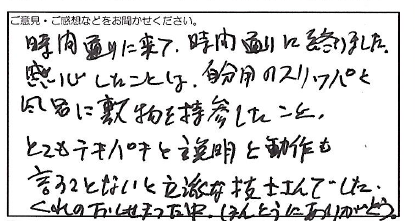 ご意見・ご感想などをお聞かせください。
時間通りに来て、時間通りに終りました。
感心したことは、自分用のスリッパと
風呂に敷物を持参したこと、
とてもテキパキと説明と動作も
言うことないと立派な技士さんでした。
くれのおしせまった中、ほんとうにありがとう。